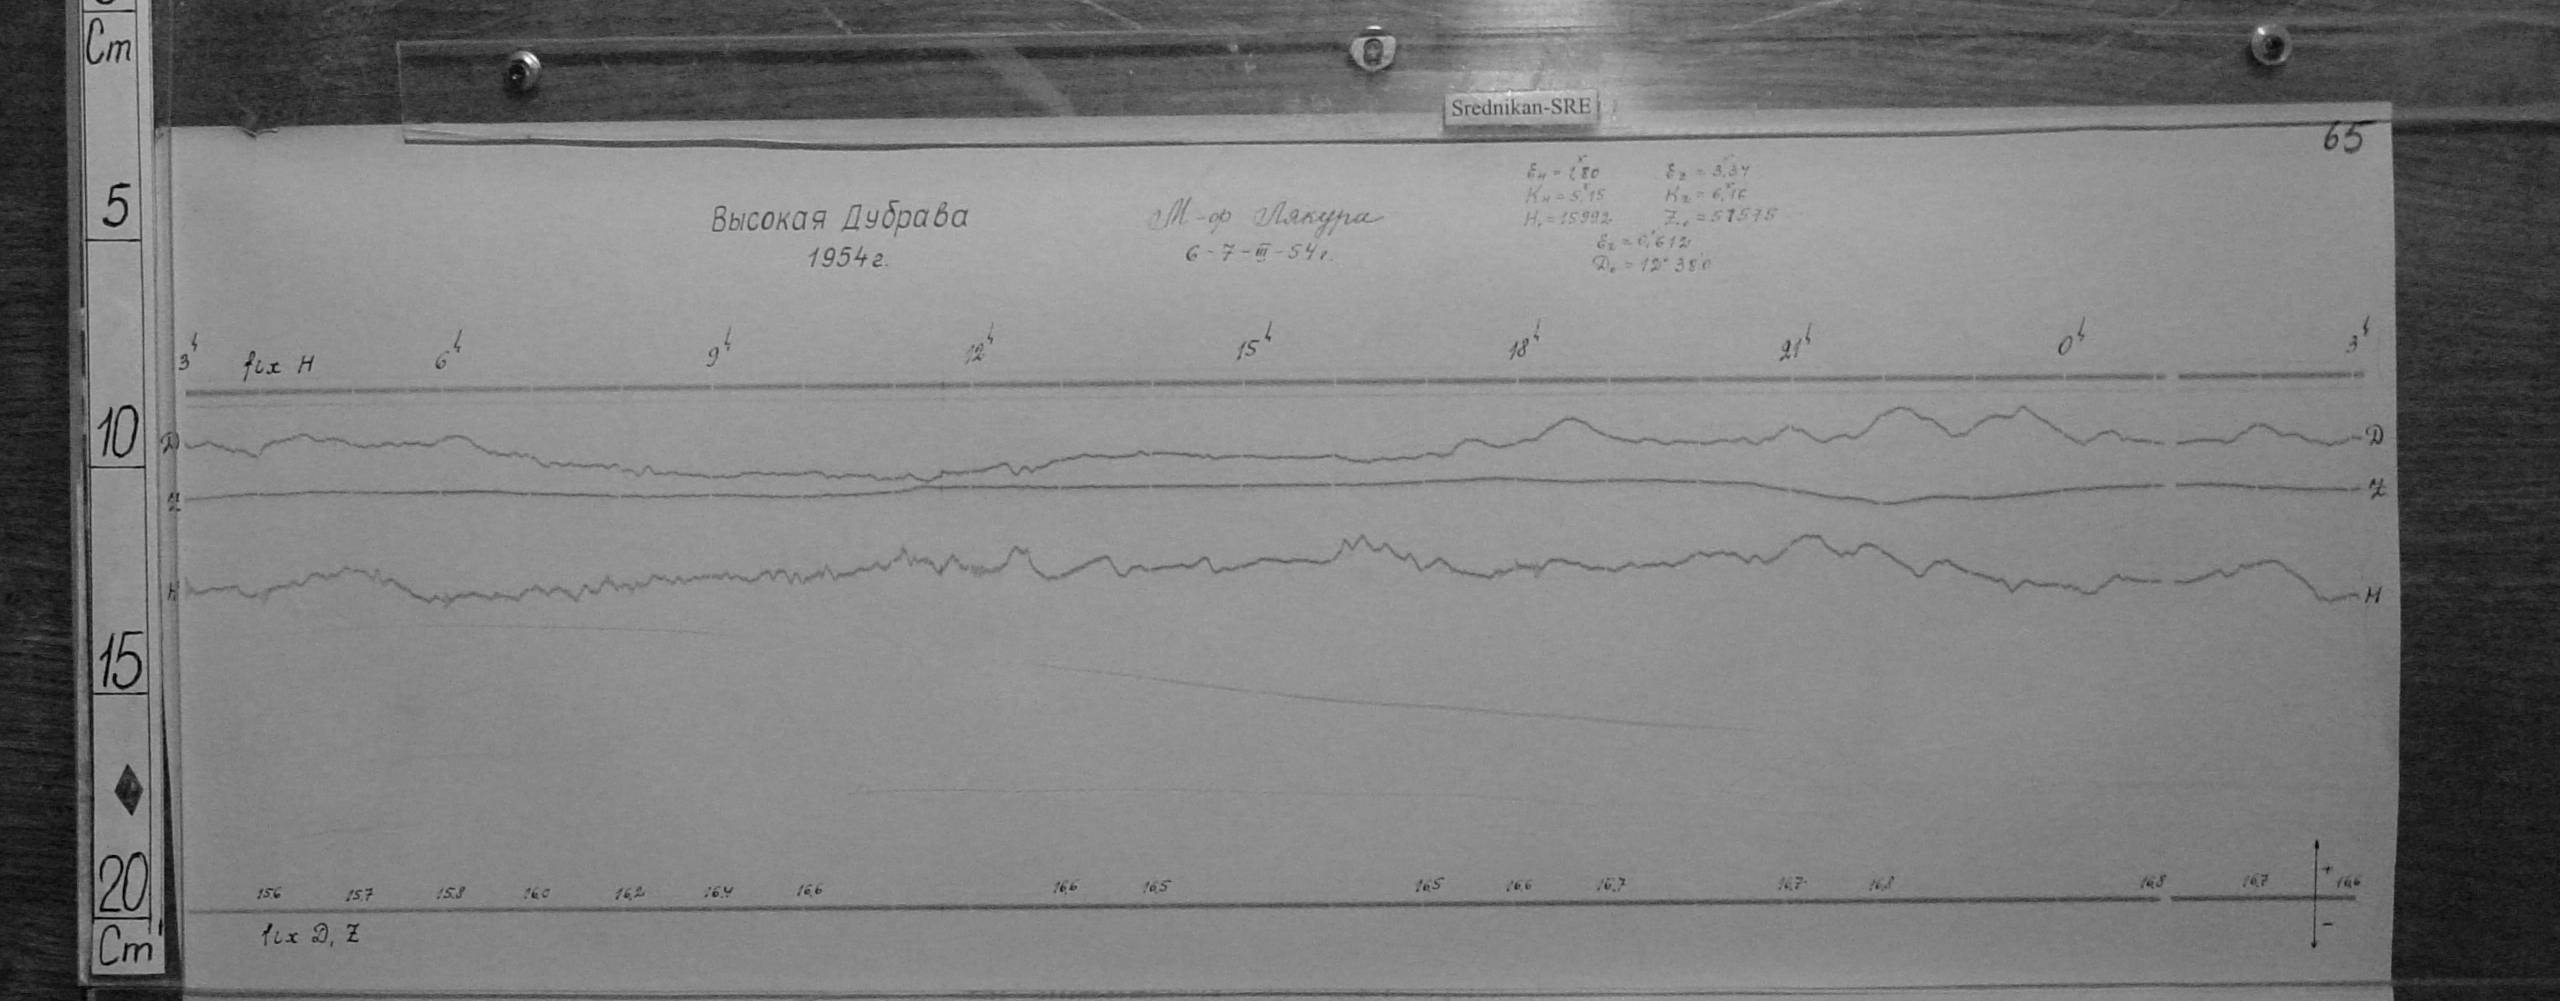 Cm
5
10
15
20
Cm
Srednikan-SRE
65
Высокая Дубрава
1954г.
М-ф Лякура
6-7-III-54г.
Ɛн = 1,80 Ɛz = 3,34
Kн = 5,15 Kz = 6,16
H₀ = 15992
D₀ = 12°38,0
3ч 6ч 9ч 12ч 15ч 18ч 21ч 0ч 3ч
fix H
Д Д
Z Z
H H
15,6 15,7 15,8 16,0 16,2 16,4 16,6 16,6 16,5 16,5 16,6 16,7 16,7 16,8 16,8 16,7 16,6
+
-
fix Д, Z